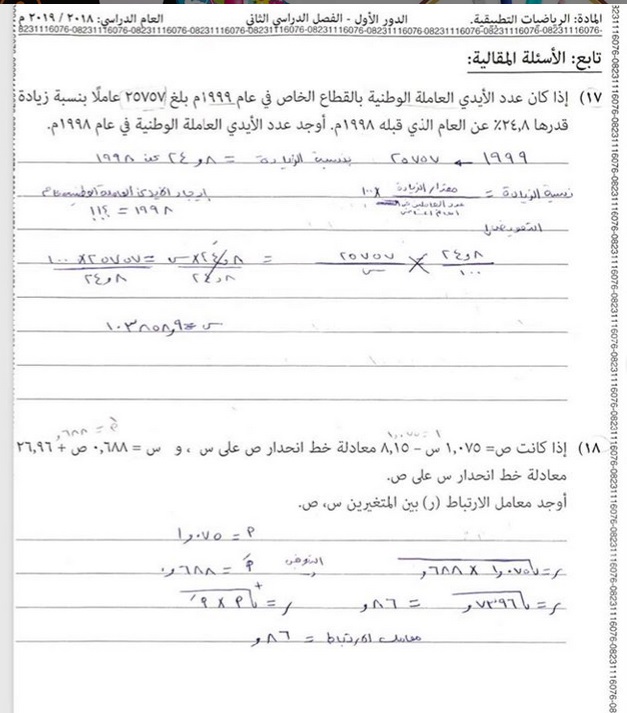 المادة: الرياضيات التطبيقية. الدور الأول - الفصل الدراسي الثاني العام الدراسي: ٢٠١٨ / ٢٠١٩ م
تابع: الأسئلة المقالية:
١٧) إذا كان عدد الأيدي العاملة الوطنية بالقطاع الخاص في عام ١٩٩٩م بلغ ٢٥٧٥٧ عاملًا بنسبة زيادة
قدرها ٢٤,٨٪ عن العام الذي قبله ١٩٩٨م. أوجد عدد الأيدي العاملة الوطنية في عام ١٩٩٨م.
١٩٩٩ ← ٢٥٧٥٧ بنسبة الزيادة = ٢٤,٨ عن ١٩٩٨
نسبة الزيادة = مقدار الزيادة × ١٠٠
إيجاد الأيدي العاملة الوطنية عام
١٩٩٨ = ؟؟؟
التعويض
٢٤,٨ / ١٠٠ × ٢٥٧٥٧ / س = ٢٤,٨ × س / ٢٤,٨ = ٢٥٧٥٧ × ١٠٠ / ٢٤,٨
س = ١٠٣٨٥٨,٩
١٨) إذا كانت ص= ١,٠٧٥ س - ٨,١٥ معادلة خط انحدار ص على س ، و س = ٠,٦٨٨ ص + ٢٦,٩٦
معادلة خط انحدار س على ص.
أوجد معامل الارتباط (ر) بين المتغيرين س، ص.
م = ١,٠٧٥
ر = √ ١,٠٧٥ × ,٦٨٨ التعويض مَ = ,٦٨٨
ر = √ ,٧٣٩٦ = ,٨٦ ر = + √ م × مَ
معامل الارتباط = ,٨٦
08231116076-08231116076-08231116076-08231116076